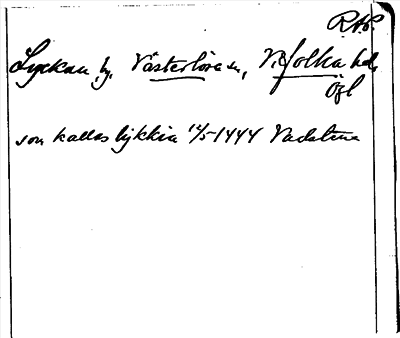 R.A.P.
Lyckan, by, Västerlösa sn, Vifolka hd,
Ögl
son kallas lykkia 12/5 1444 Vadstena